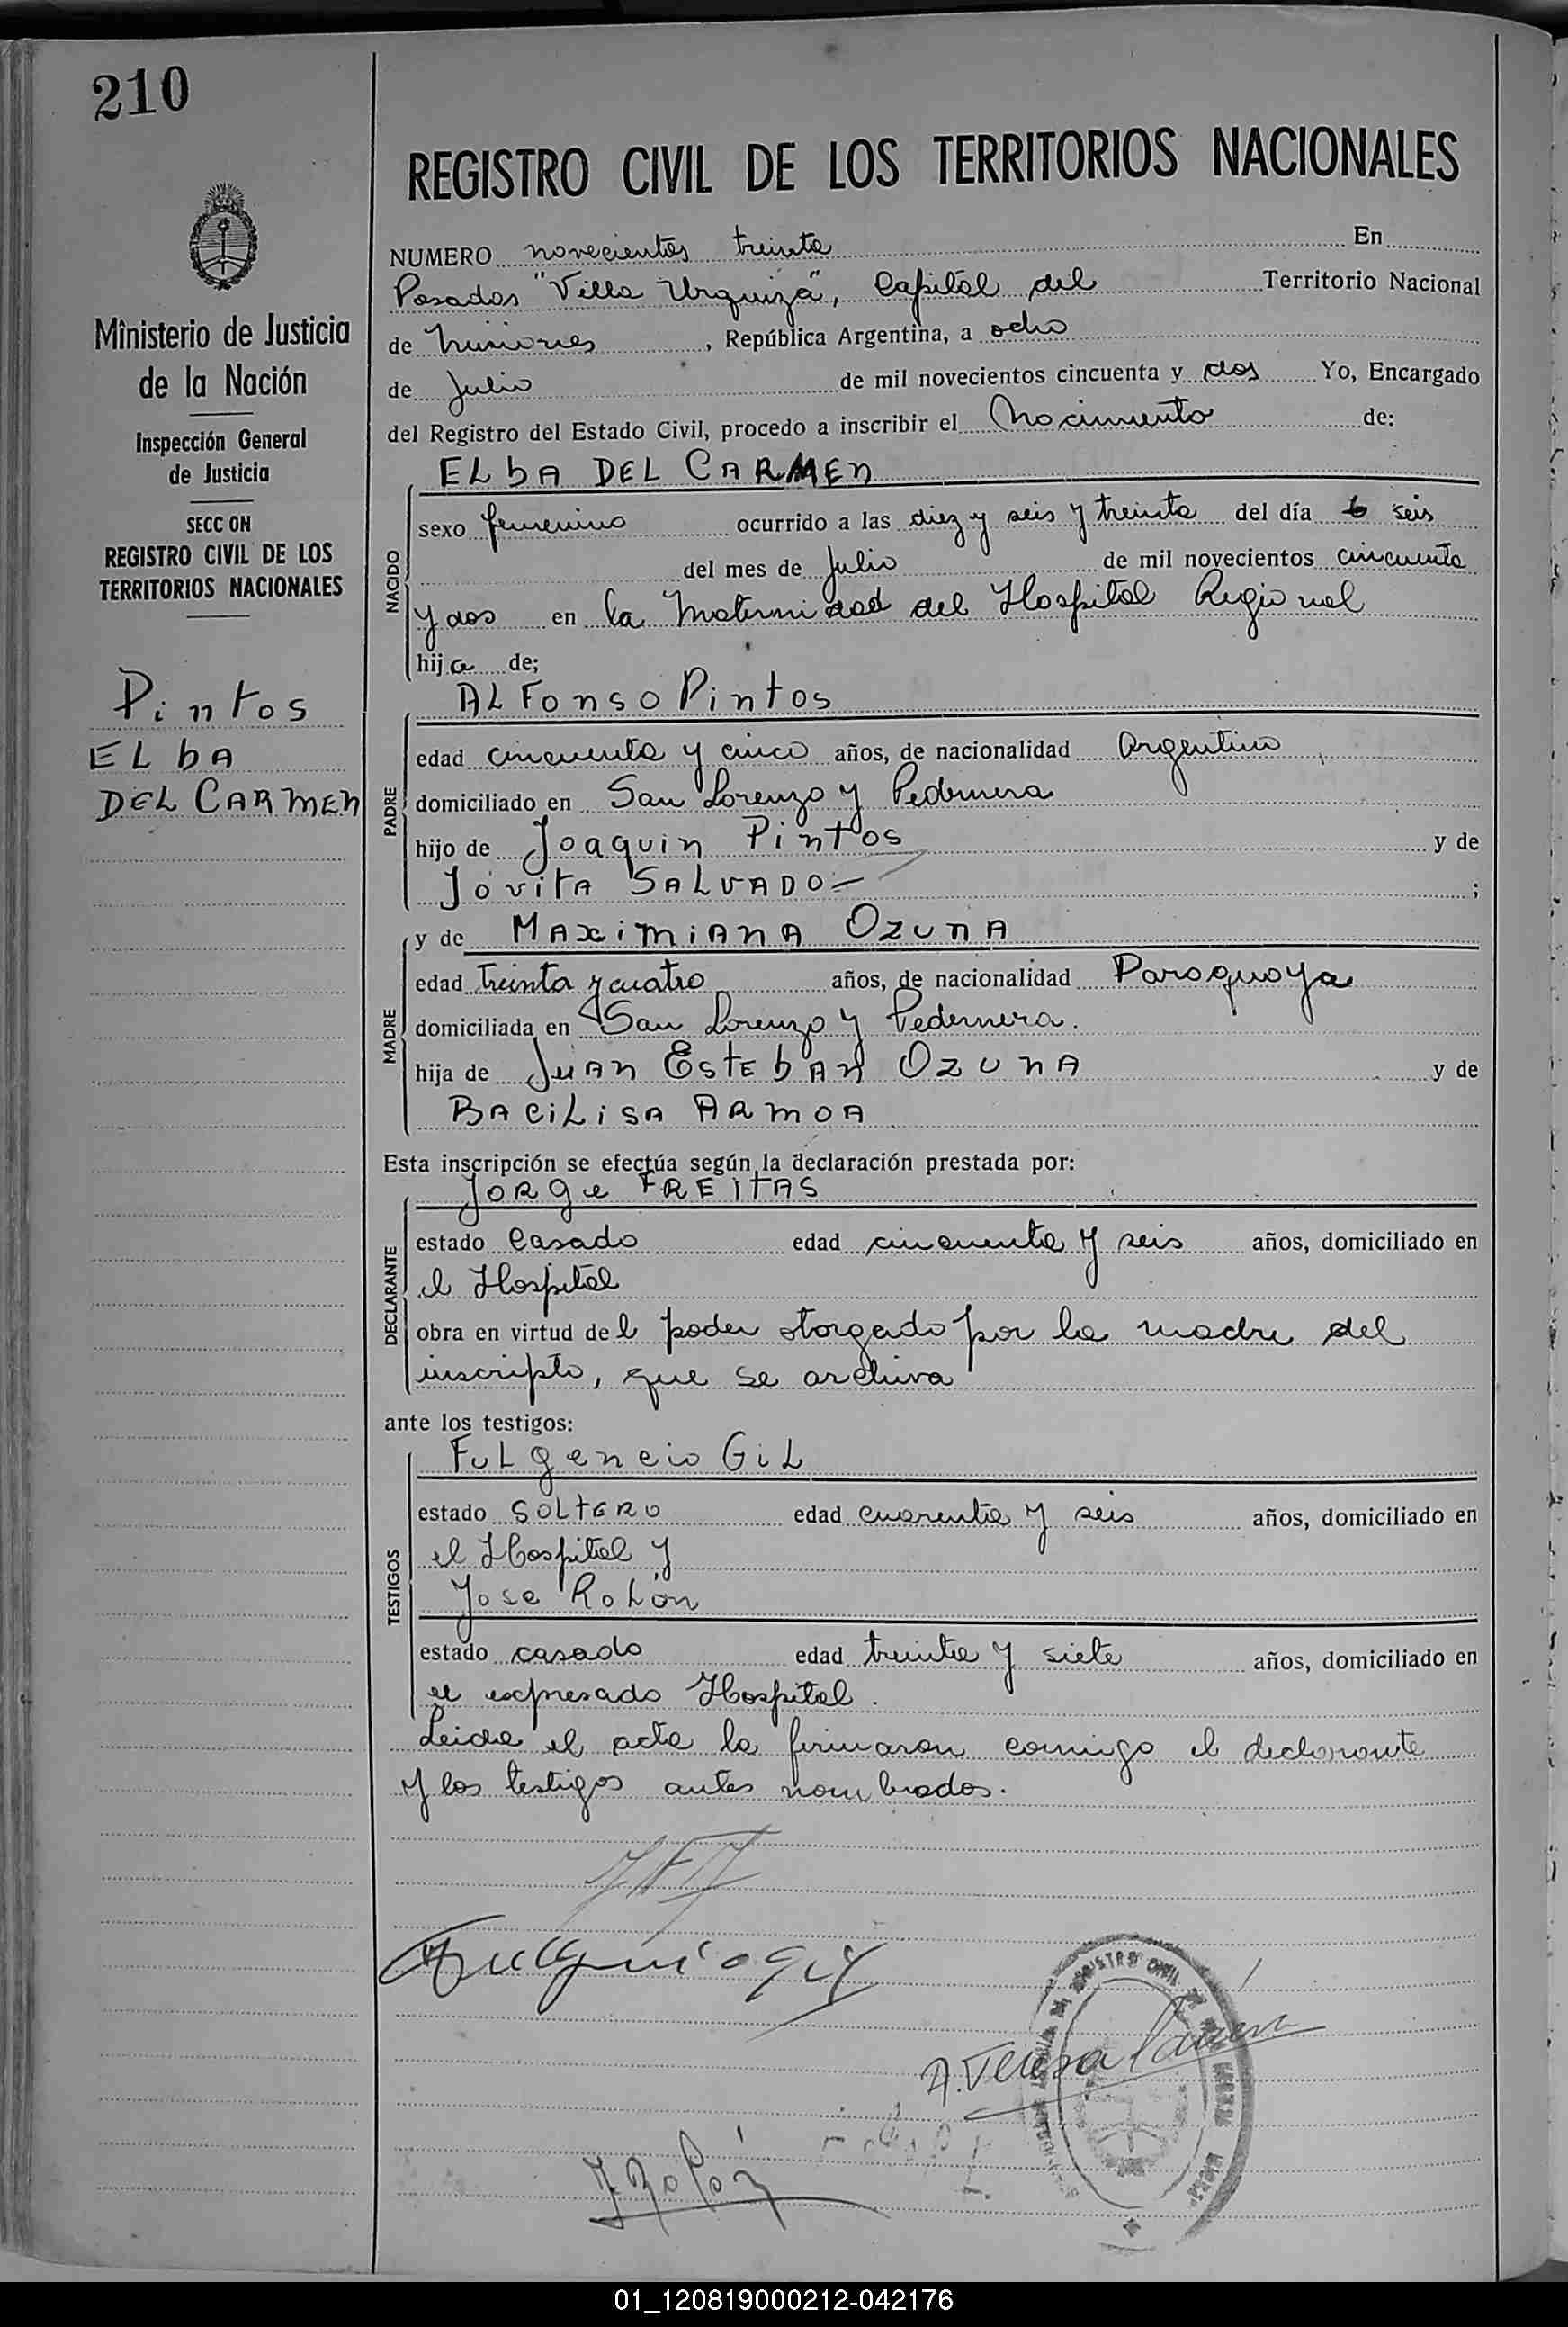 210
Ministerio de Justicia
de la Nación
Inspección General
de Justicia
SECC ON
REGISTRO CIVIL DE LOS
TERRITORIOS NACIONALES
Pintos
ELbA
DEL CARMEN
REGISTRO CIVIL DE LOS TERRITORIOS NACIONALES
NUMERO novecientos treinta En
Posadas "Villa Urquiza", Capital del Territorio Nacional
de Misiones, República Argentina, a ocho
de Julio de mil novecientos cincuenta y dos Yo, Encargado
del Registro del Estado Civil, procedo a inscribir el Nacimiento de:
ELbA DEL CARMEN
NACIDO
sexo femenino ocurrido a las diez y seis y treinta del día 6 seis
del mes de Julio de mil novecientos cincuenta
y dos en la Maternidad del Hospital Regional
hija de;
ALFonso Pintos
PADRE
edad cincuenta y cinco años, de nacionalidad Argentino
domiciliado en San Lorenzo y Pedernera
hijo de Joaquin Pintos y de
Jovita SALVADO- ;
y de MAximiANA OzunA
MADRE
edad treinta y cuatro años, de nacionalidad Paraguaya
domiciliada en San Lorenzo y Pedernera.
hija de JuAn EstEbAn OzunA y de
BACiLiSA ARMOA
Esta inscripción se efectúa según la declaración prestada por:
JORge FREITAS
DECLARANTE
estado Casado edad cincuenta y seis años, domiciliado en
el Hospital
obra en virtud del poder otorgado por la madre del
inscripto, que se archiva
ante los testigos:
FuLgencio GiL
TESTIGOS
estado SOLtERO edad cuarenta y seis años, domiciliado en
el Hospital y
Jose RoLón
estado casado edad treinta y siete años, domiciliado en
el expresado Hospital.
Leida el acta la firmaron conmigo el declarante
y los testigos antes nombrados.
Fulgencio Gil
A. Teresa
J Rolón
01_120819000212-042176